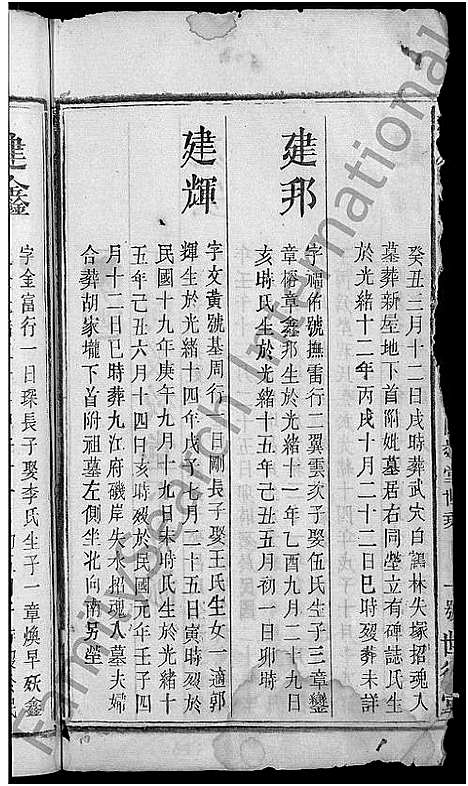 癸丑三月十二日戌時葬武穴白鶴林失塚招魂入
墓葬新屋地下首附妣墓居右同塋立有碑誌氏生
於光緒十二年丙戌十月二十二日巳時歿葬未詳
建邦
字禰佑號撫雷行二翼雲次子娶伍氏生子三章鑾
章榕章鑫邦生於光緒十一年乙酉九月二十九日
亥時氏生於光緒 五月初一日卯時
建輝
字文黃號基周行一日剛長子娶王氏生女一適郭
輝生於光緒十四年戊子七月二十五日寅時歿於
民國十九年庚午九月十九日未時氏生於光緒十
五年己丑六月十四日亥時歿於民國元年壬子四
月十二日巳時葬九江府磯岸失水招魂入墓夫婦
合葬胡家壠下首附祖墓左側坐北向南另塋
建鑫
字金富行一日琛長子娶李氏生子一章煥早殀鑫
FamilySearch International